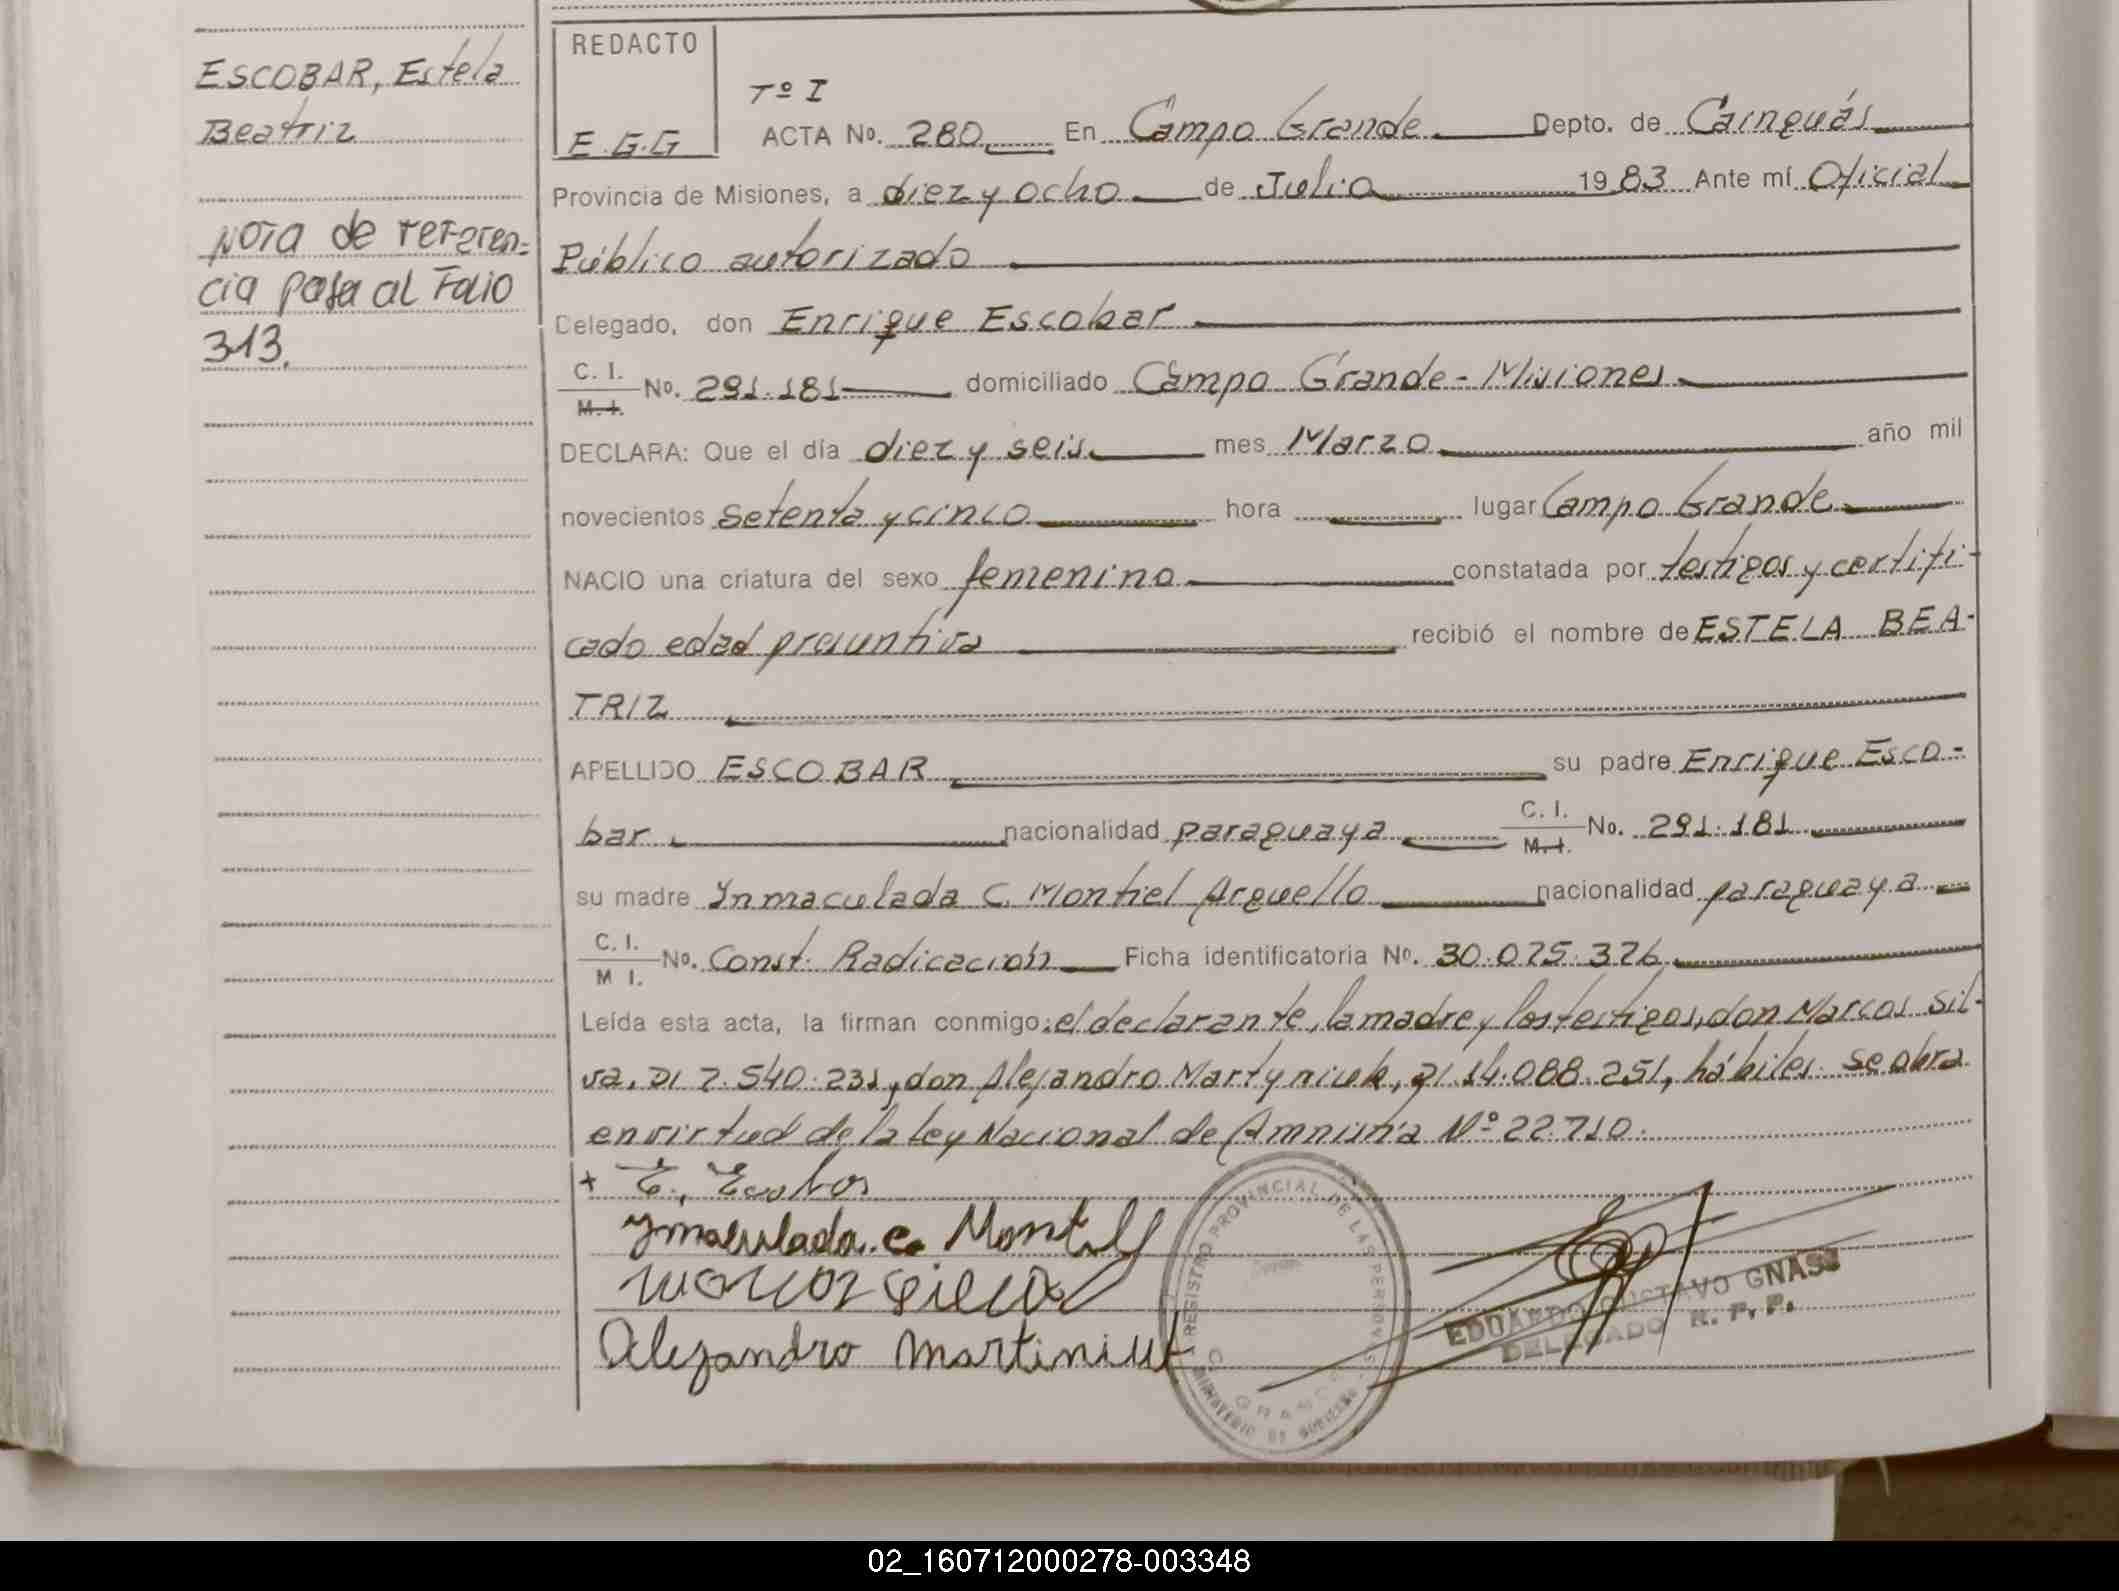 ESCOBAR, Estela
Beatriz
Nota de referen-
cia pasa al Folio
313.
REDACTO
E.G.G
Tº I
ACTA No. 280 En Campo Grande Depto. de Cainguás
Provincia de Misiones, a diez y ocho de Julio 19 83 Ante mí Oficial
Público autorizado
Delegado, don Enrique Escobar
C. I.
M. I. No. 291.181 domiciliado Campo Grande - Misiones
DECLARA: Que el día diez y seis mes Marzo año mil
novecientos setenta y cinco hora lugar Campo Grande
NACIO una criatura del sexo femenino constatada por testigos y certifi-
cado edad presuntiva recibió el nombre de ESTELA BEA-
TRIZ
APELLIDO ESCOBAR su padre Enrique Esco-
bar nacionalidad paraguaya C. I.
M. I. No. 291.181
su madre Ynmaculada C. Montiel Arguello nacionalidad paraguaya
C. I.
M I. No. Const. Radicación Ficha identificatoria No. 30.075.376
Leída esta acta, la firman conmigo: el declarante, la madre y los testigos, don Marcos Sil-
va, DI 7.540.231, don Alejandro Martyniuk, DI 14.088.251, hábiles. Se obra
en virtud de la ley Nacional de Amnistía Nº 22.710.
+ E. Escobar
Ynmaculada c. Montiel
Marcos Silva
Alejandro Martiniuk
REGISTRO PROVINCIAL DE LAS PERSONAS
C. GRANDE
MINISTERIO DE GOBIERNO
EDUARDO GUSTAVO GNASS
DELEGADO R. P. P.
02_160712000278-003348